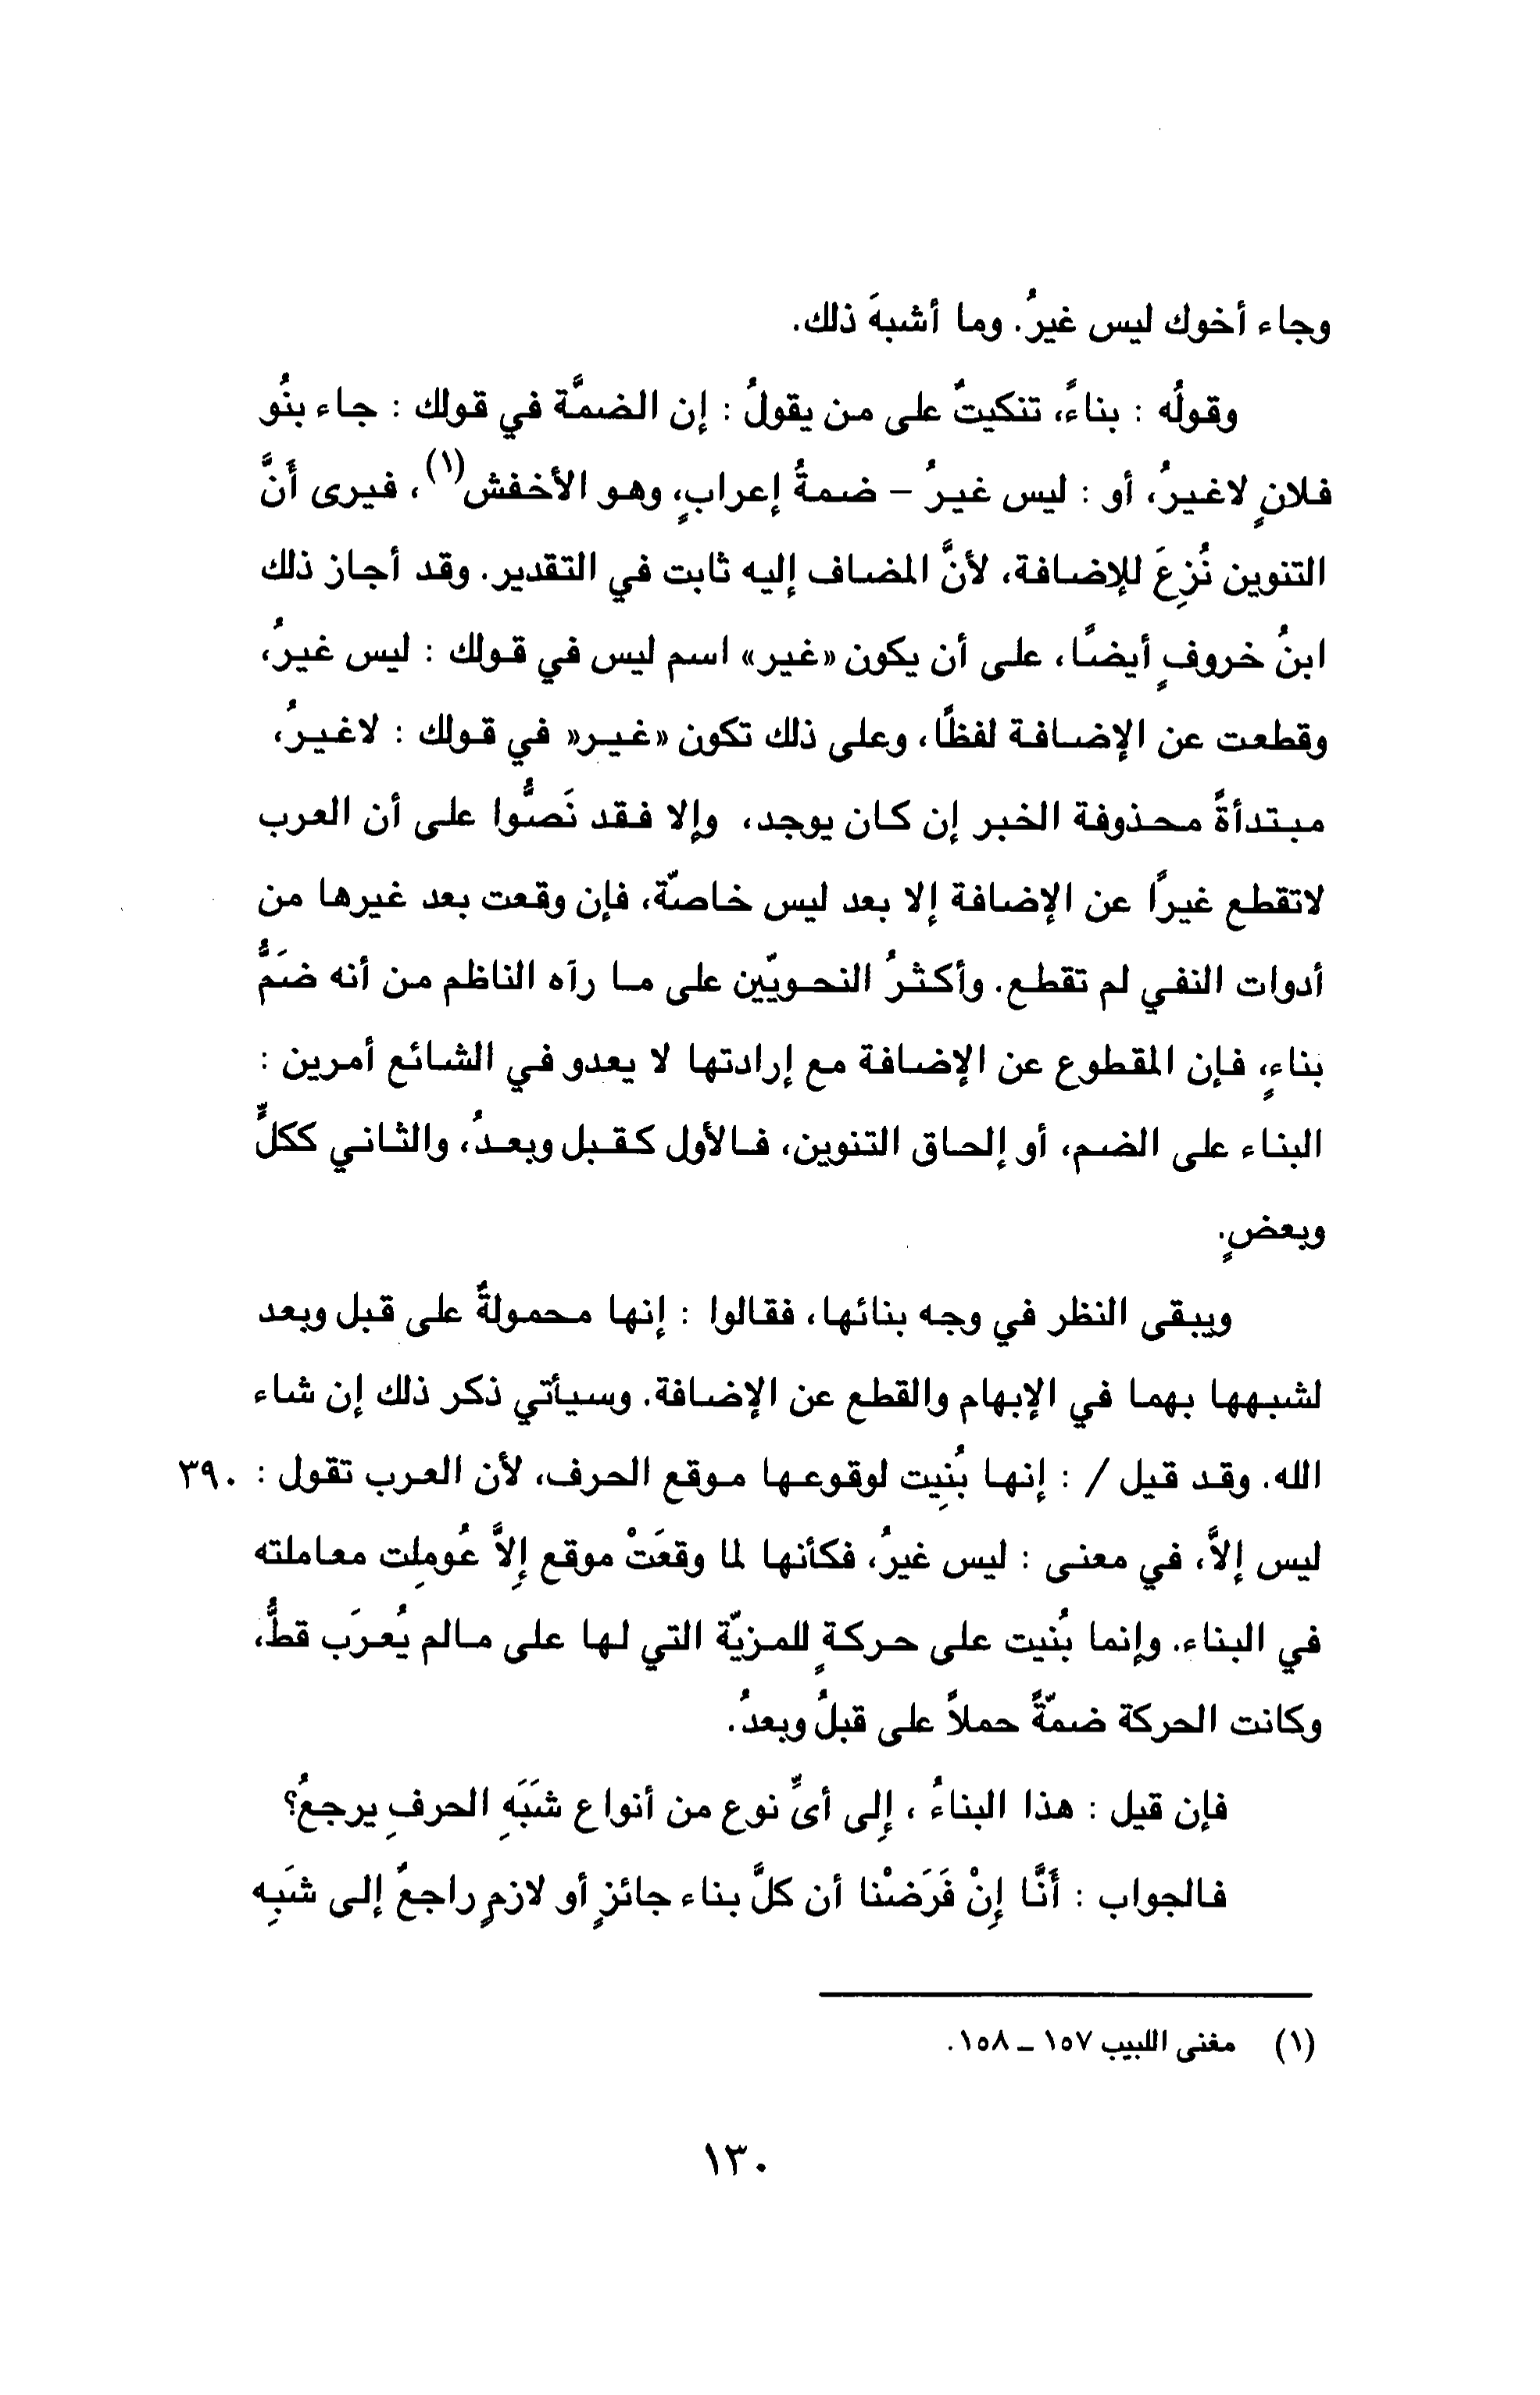 وجاء أخوك ليس غيرُ. وما أشبهَ ذلك.
وقولُه : بناءً، تنكيتٌ على من يقولُ : إن الضمَّة في قولك : جاء بنُو
فلانٍ لاغيرُ، أو : ليس غيرُ – ضمةُ إعرابٍ، وهو الأخفش(١)، فيرى أَنَّ
التنوين نُزِعَ للإضافة، لأنَّ المضاف إليه ثابت في التقدير. وقد أجاز ذلك
ابنُ خروفٍ أيضًا، على أن يكون «غير» اسم ليس في قولك : ليس غيرُ،
وقطعت عن الإضافة لفظًا، وعلى ذلك تكون «غير» في قولك : لاغيرُ،
مبتدأةً محذوفة الخبر إن كان يوجد، وإلا فقد نَصُّوا على أن العرب
لاتقطع غيرًا عن الإضافة إلا بعد ليس خاصّة، فإن وقعت بعد غيرها من
أدوات النفي لم تقطع. وأكثرُ النحويّين على ما رآه الناظم من أنه ضَمُّ
بناءٍ، فإن المقطوع عن الإضافة مع إرادتها لا يعدو في الشائع أمرين :
البناء على الضم، أو إلحاق التنوين، فالأول كقبل وبعدُ، والثاني ككلٍّ
وبعضٍ.
ويبقى النظر في وجه بنائها، فقالوا : إنها محمولةٌ على قبل وبعد
لشبهها بهما في الإبهام والقطع عن الإضافة. وسيأتي ذكر ذلك إن شاء
الله. وقد قيل / : إنها بُنِيت لوقوعها موقع الحرف، لأن العرب تقول : ٣٩٠
ليس إلاَّ، في معنى : ليس غيرُ، فكأنها لما وقعَتْ موقع إِلاَّ عُومِلت معاملته
في البناء. وإنما بُنيت على حركةٍ للمزيّة التي لها على مالم يُعرَب قطُّ،
وكانت الحركة ضمّةً حملاً على قبلُ وبعدُ.
فإن قيل : هذا البناءُ ، إِلى أىِّ نوع من أنواع شَبَهِ الحرفِ يرجعُ؟
فالجواب : أَنَّا إِنْ فَرَضْنا أن كلَّ بناء جائزٍ أو لازمٍ راجعٌ إلى شَبَهِ
(١) مغنى اللبيب ١٥٧ – ١٥٨.
١٣٠